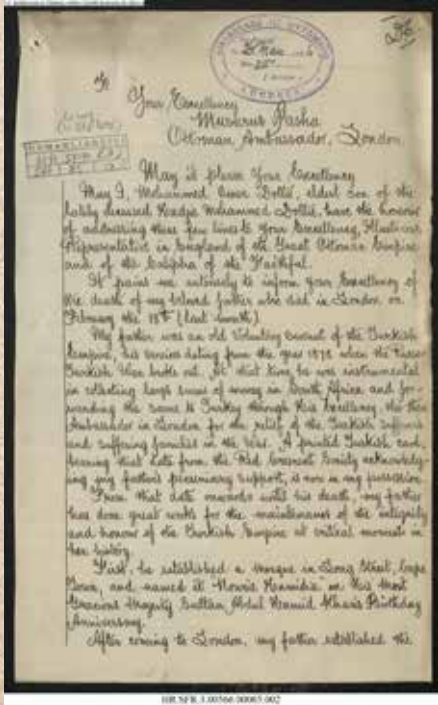 To
Your Excellency
Musurus Pasha
Ottoman Ambassador, London.
May it please Your Excellency
May I, Mohammed Omer Dollie, eldest son of the
lately deceased Hadjie Mohammed Dollie, have the honour
of addressing these few lines to Your Excellency, Illustrious
Representative in England of the Great Ottoman Empire
and of the Caliphs of the Faithful.
It pains me intensely to inform your Excellency of
the death of my beloved father who died in London on
February the 18th (last month).
My father was an old Voluntary Servant of the Turkish
Empire, his services dating from the year 1878 when the Russo
Turkish War broke out. At that time he was instrumental
in collecting large sums of money in South Africa and for-
warding the same to Turkey through His Excellency the then
Ambassador in London for the relief of the Turkish
and suffering families in the War. A printed Turkish card,
bearing that date from the Red Crescent Society acknowledg-
ing my father's pecuniary support, is now in my possession.
From that date onwards until his death, my father
has done great works for the maintenance of the integrity
and honour of the Turkish Empire at critical moments in
her history.
First, he established a mosque in Long Street, Cape
Town, and named it Hamidia on His Most
Gracious Majesty Sultan Abdul Hamid Khan's Birthday
Anniversary.
After coming to London, my father established the
HR.SFR.3.00566.00065.002